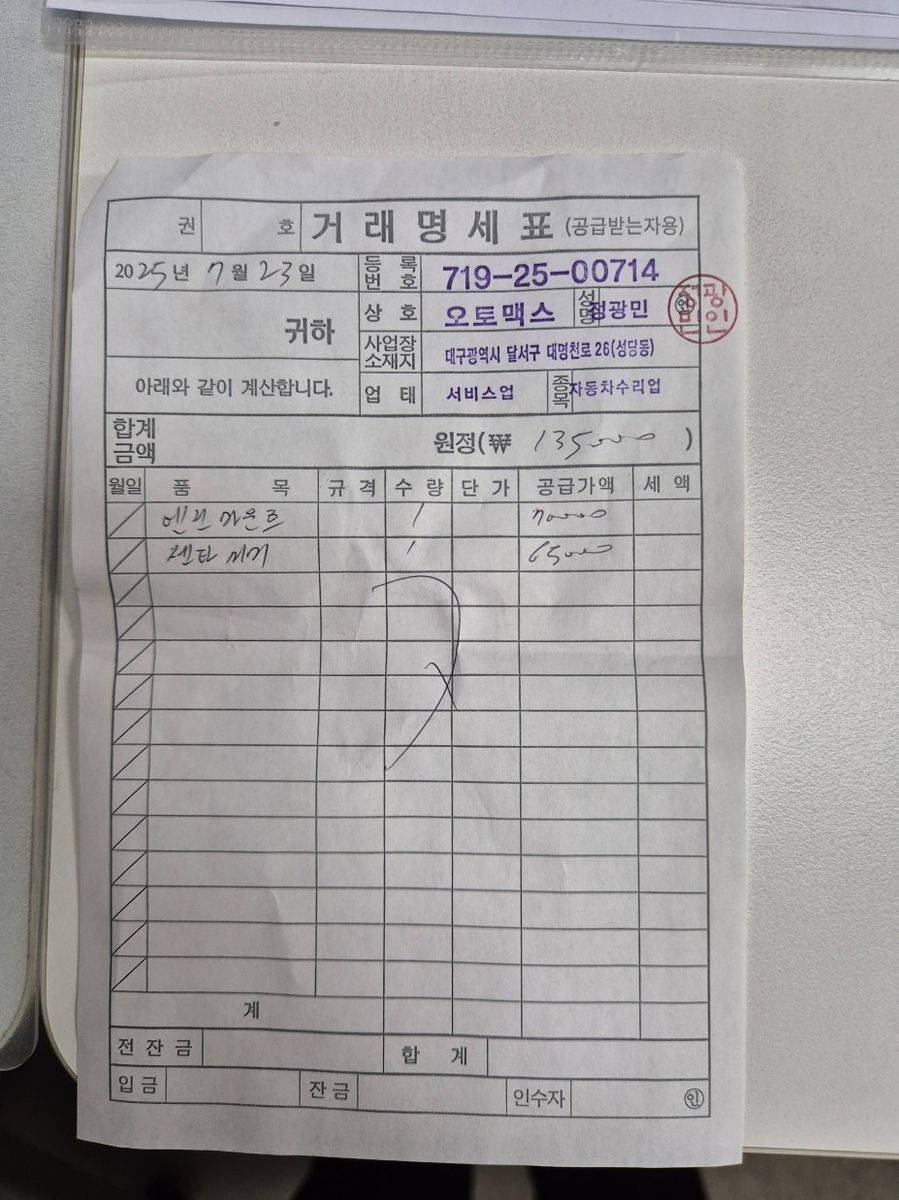 권 호 거래명세표 (공급받는자용)
2025년 7월 23일
등록번호 719-25-00714
귀하
상호 오토맥스 성명 정광민 ㊞
사업장소재지 대구광역시 달서구 대명천로 26(성당동)
아래와 같이 계산합니다.
업태 서비스업 종목 자동차수리업
합계금액 원정(₩ 135000 )
월일 품목 규격 수량 단가 공급가액 세액
엔진 마운트 1 70000
1 65000
계
전잔금 합계
입금 잔금 인수자 ㊞